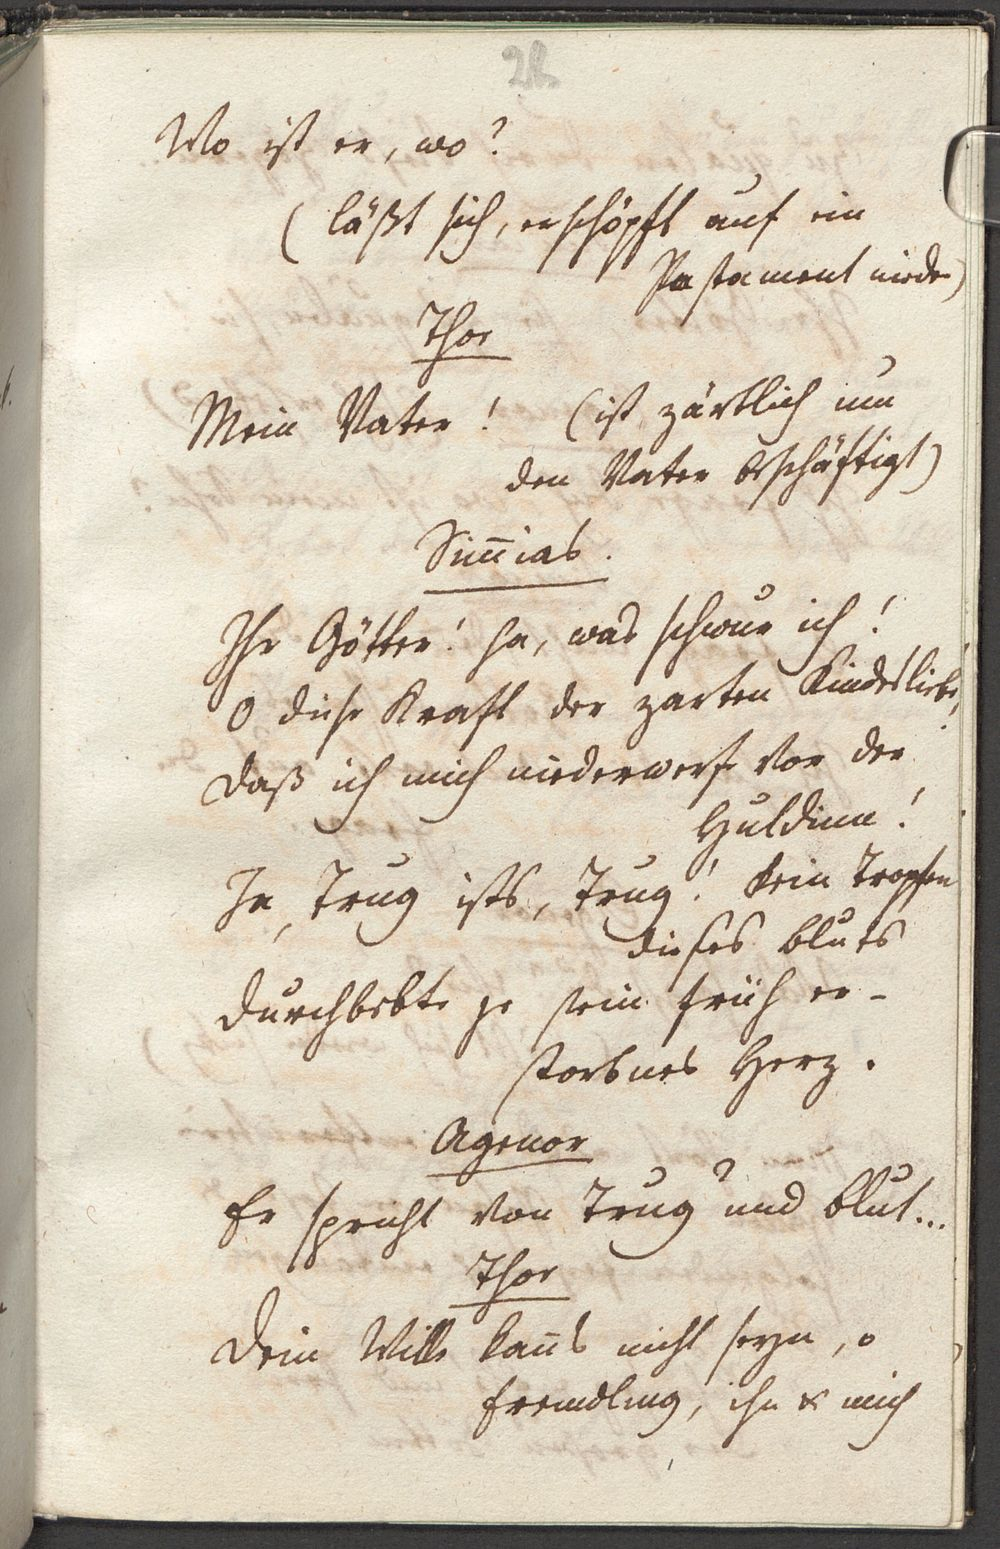 28.
Wo ist er, wo?
(läßt sich, erschöpft auf ein
Pastament nieder)
Thor
Mein Vater! (ist zärtlich um
den Vater beschäftigt)
Sim̄ias.
Ihr Götter! ha, was schwur ich!
O diese Kraft der zarten Kindesliebe!
Daß ich mich niederwerfe vor der
Huldinn!
Ja, Trug ists, Trug! kein Tropfen
dieses Bluts
Durchbebte je sein früh er-
storbnes Herz.
Agenor
Er spricht von Trug und Blut...
Thor
Dein Wille kan̄s nicht seyn, o
Fremdling, ihn & mich